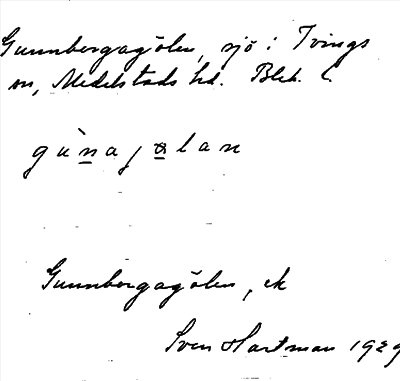 Gunnbergagölen, sjö i Tvings
sn, Medelstads hd. Blek. l.
gùnajɵlan
Gunnbergagölen, ek
Sven Hartman 1929